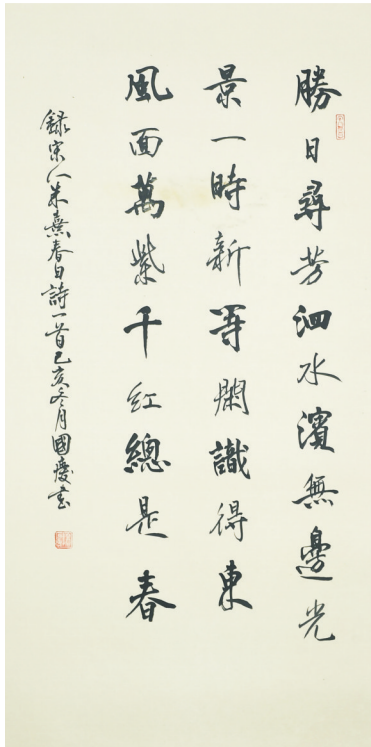 勝日尋芳泗水濱無邊光
景一時新等閑識得東
風面萬紫千紅總是春
錄宋人朱熹春日詩一首己亥冬月國慶書